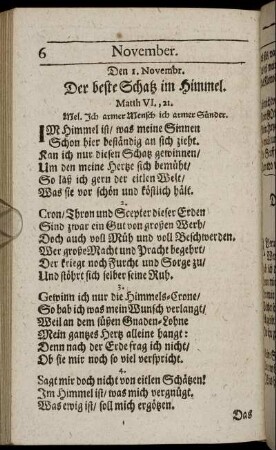 6 November.
Den 1. Novembr.
Der beste Schatz im Himmel.
Matth VI., 21.
Mel. Ich armer Mensch ich armer Sünder.
IM Himmel ist/ was meine Sinnen
Schon hier beständig an sich zieht.
Kan ich nur diesen Schatz gewinnen/
Um den meine Hertze sich bemüht/
So laß ich gern der eitlen Welt/
Was sie vor schön und köstlich hält.
2.
Cron/Thron und Scepter dieser Erden
Sind zwar ein Gut von großen Werh/
Doch auch voll Müh und voll Beschwerden.
Wer große Macht und Pracht begehrt/
Der kriege noch Furcht und Sorge zu/
Und stöhrt sich selber seine Ruh.
3.
Gewinn ich nur die Himmels-Crone/
So hab ich was mein Wunsch verlangt/
Weil an dem süßen Gnaden-Lohne
Mein gantzes Hertz alleine hangt:
Denn nach der Erde frag ich nicht/
Ob sie mir noch so viel verspricht.
4.
Sagt mir doch nicht von eitlen Schätzen!
Im Himmel ist/ was mich vergnügt.
Was ewig ist/ soll mich ergötzen.
Das